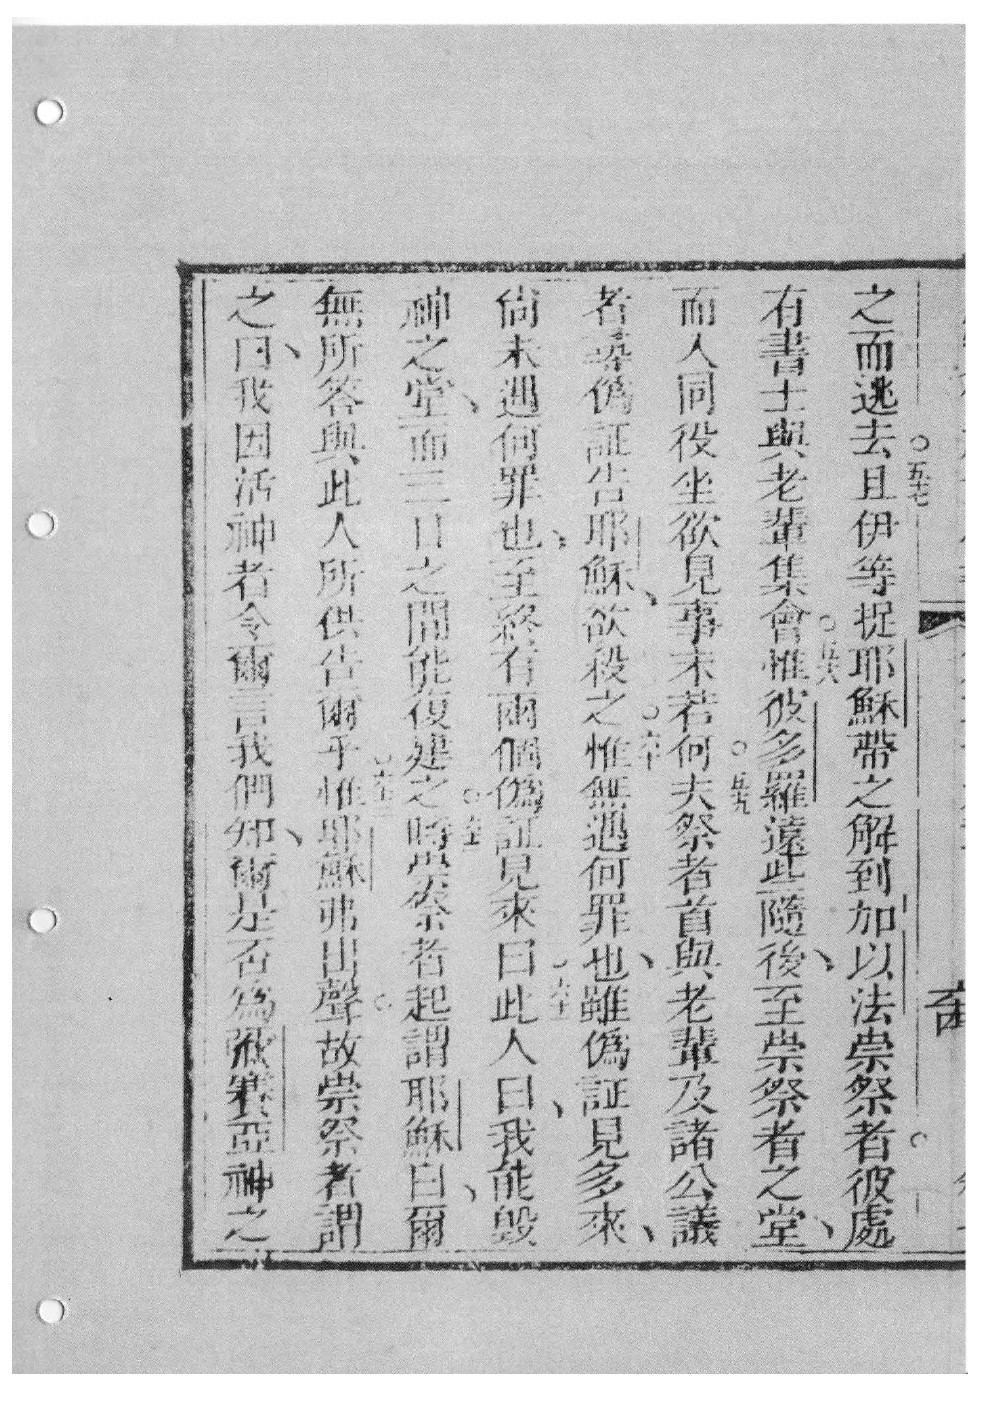 之而逃去且伊等捉耶穌帶之解到加以法祟祭者彼處
五七
有書士與老輩集會惟彼多羅遠些隨後至祟祭者之堂
五八
而人同役坐欲見事末若何夫祭者首與老輩及諸公議
五九
者尋偽証告耶穌欲殺之惟無遇何罪也雖偽証見多來
六十
尚未遇何罪也至終有兩個偽証見來曰此人曰我能毀
六十一
神之堂而三日之間能復建之時祟祭者起謂耶穌曰爾
六十二
無所答與此人所供告爾乎惟耶穌弗出聲故祟祭者謂
六十三
之曰我因活神者令爾言我們知爾是否為彌賽亞神之